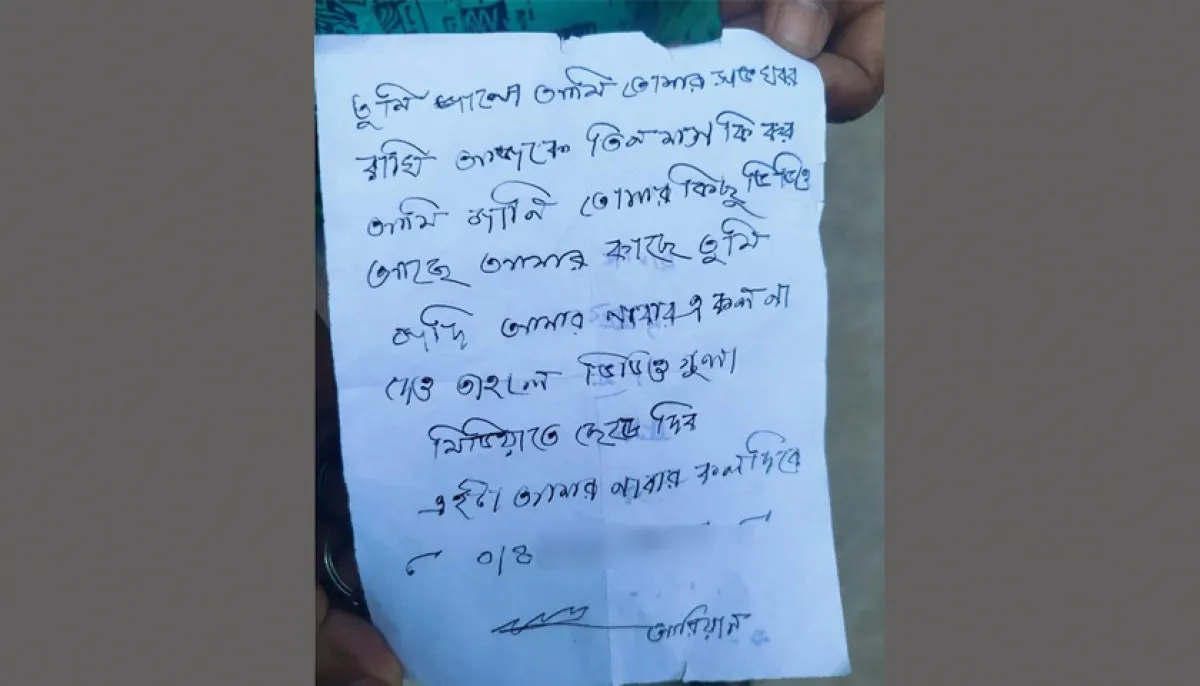 তুমি জানো আমি তোমার সব খবর
রাখি আজকে তিন মাস কি কর
আমি জানি তোমার কিছু ভিডিও
আছে আমার কাছে তুমি
জদি আমার নাবার এ কল না
দেও তাহলে ভিডিও গুলা
মিডিয়াতে ছেড়ে দিব
এইটা আমার নাবার কল দিবে
০/৪
আরিয়ান